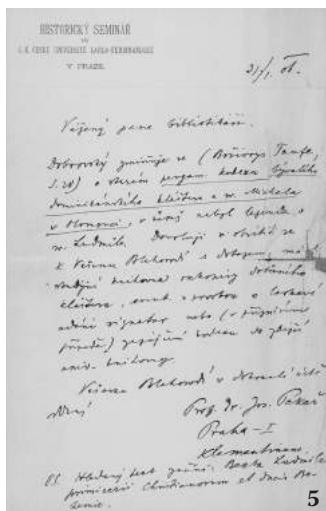 HISTORICKÝ SEMINÁŘ
C. K. ČESKÉ UNIVERSITĚ KARLO-FERDINANDSKÉ
V PRAZE.
31/I 06.
Vážený pane bibliotékáři.
Dobrovský zmiňuje se (Bořivoys Taufe,
o pergam. kodexu bývalého
dominikánského kláštera sv. Michala
v Olomouci, v němž nebyl legenda o
sv. Ludmile. Dovoluji si obrátiti se
k Vašemu Blahorodí s dotazem, má-li
studijní knihovna rukopisy dotčeného
kláštera, a o laskavé
udání signatur nebo (v příznivém
případě) zapůjčení kodexu do zdejší
univ. knihovny.
Vašemu Blahorodí v dokonalé úctě
oddaný
Prof. Dr. Jos. Pekař
Praha - I
Klementinum.
PS. Hledaný text začíná: Beata Ludmila
primiceria Christianorum
5